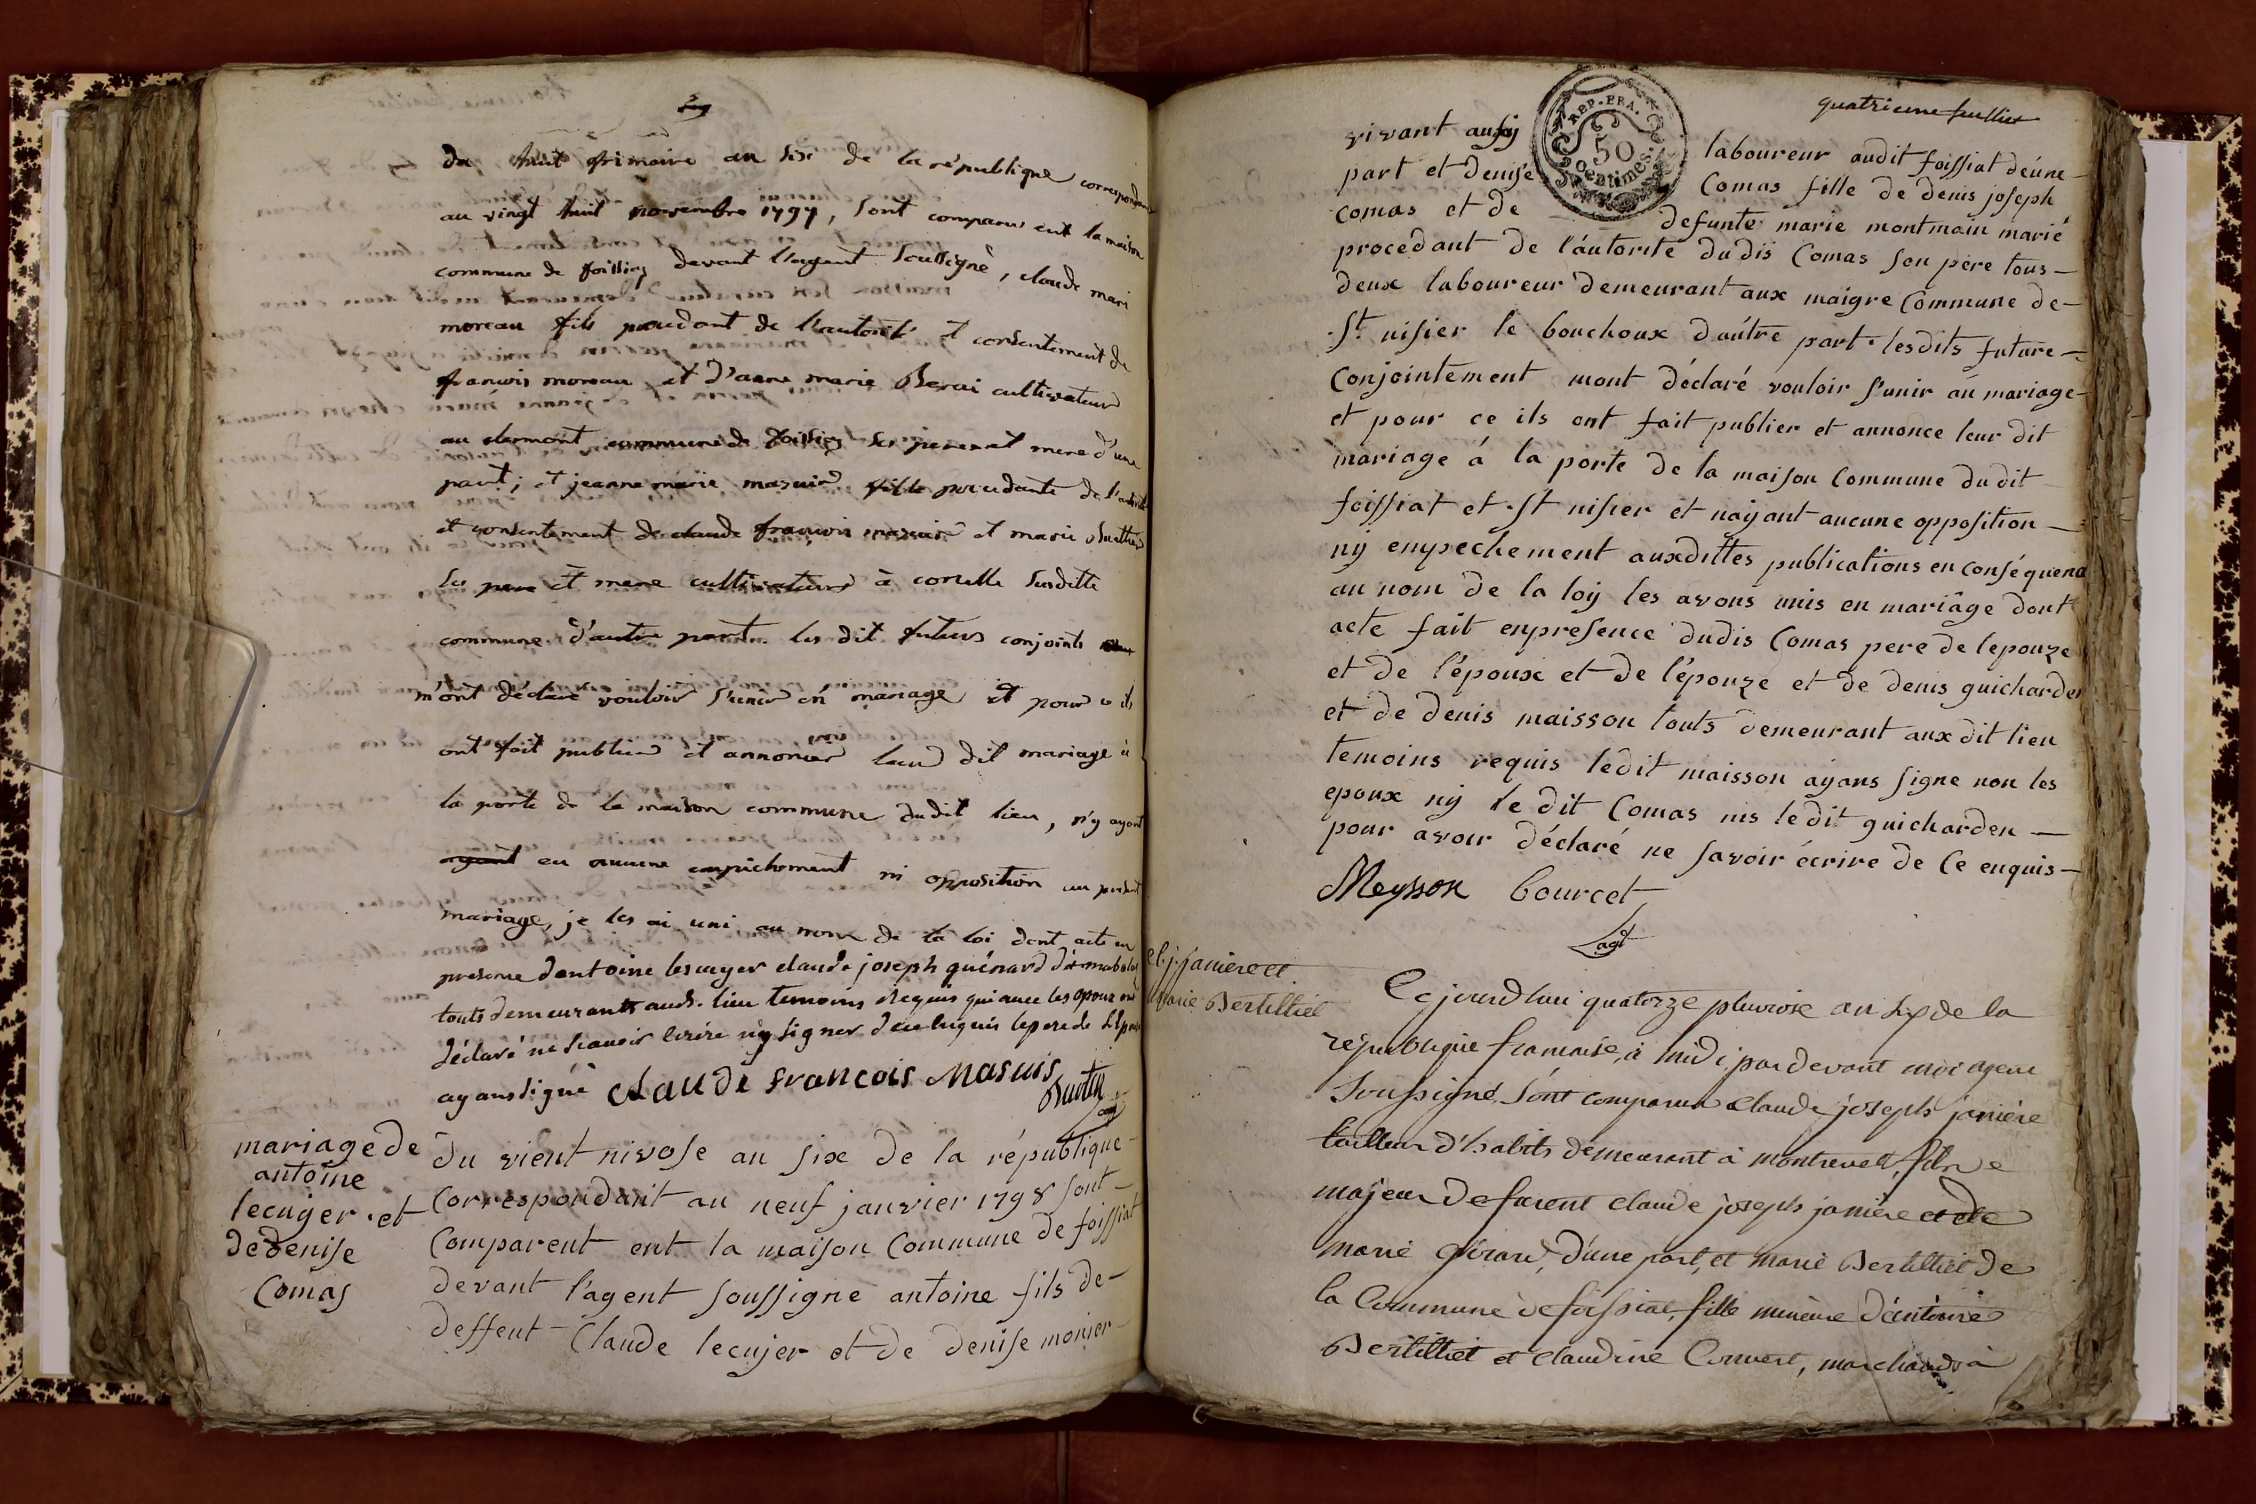 du huit frimaire an six de la république correspondant
au vingt huit novembre 1797, sont comparus ent la maison
commune de foissiaz devant l'agent soussigné, claude mari
moreau fils procedant de l'autorité et consentement de
francois moreau et d'anne marie cultivateurs
au clermont commune de foissiaz ses pere et mere d'une
part; et jeanne marie masuir fille procedante de l'autorité
et consentement de claude francois masuir et marie
ses pere et mere cultivateurs à corcelle susditte
commune d'autre part. les dit futurs conjoints
m'ont déclaré vouloir s'unir en mariage et pour ce ils
ont fait publier et annoncer leur dit mariage à
la porte de la maison commune dudit lieu, n'y ayant
ayant eu aucune empêchement ni opposition au present
mariage, je les ai uni au nom de la loi dont acte en
presence dantoine lescuyer claude joseph guénard dit
touts demeurants aud. lieu temoins requis qui avec les epoux ont
déclaré ne scavoir lirire ny signer d'eu enquis le pere de l'epouse
ayant signé claude francois Masuis
Buathier
agt
mariage de
antoine
lecuyer et
de denise
Comas
du vient nivose an six de la république
Correspondant au neuf janvier 1798 sont
Comparent ent la maison Commune de foissiat
devant l'agent soussigne antoine fils de
deffeut Claude lecuyer et de denise monier
quatrieme feuillet
REP. FRA.
50
Centimes.
vivant aussy laboureur audit foissiat deúne
part et denise Comas fille de denis joseph
comas et de defunte marie montmain marié
procedant de l'áutorite dudis Comas son père tous
deux laboureur demeurant aux maigre Commune de
St nisier le bouchoux daútre part lesdits future
Conjointement mont déclaré vouloir s'unir aú mariage
et pour ce ils ont fait publier et annonce leur dit
mariage á la porte de la maison Commune dudit
foissiat et St nisier et naÿant aucune opposition
nÿ enpechement auxdittes publications en conséquence
au nom de la loÿ les avons unis en mariâge dont
acte fait enpresence dudis Comas pere de lepouze
et de l'époux et de l'épouze et de denis guicharden
et de denis maisson touts demeurant aux dit lieu
temoins requis ledit maisson aÿans signe non les
epoux nÿ le dit Comas nis ledit guicharden
pour avoir déclaré ne savoir écrire de Ce enquis
Meysson Bourcet
agt
cl. j. janiere et
marie Bertilliet
Cejourd'hui quatorze pluviose an six de la
république francaise, à midi, pardevant moi agent
soussigné, sont comparu Claude joseph janiére
tailleur d'habits demeurant à montrevel, fils
majeur de furent claude joseph janiére et de
marie girard, d'une part, et marie Bertilliet de
la Commune de foissiat, fille mineure d'antoine
Bertilliet et Claudine Convert, marchands à